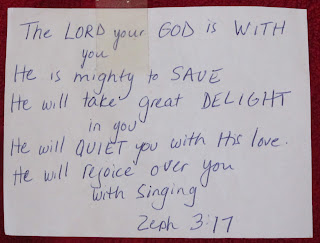 The LORD your GOD is WITH
you
He is mighty to SAVE
He will take great DELIGHT
in you
He will QUIET you with His love.
He will rejoice over you
with singing
Zeph 3:17